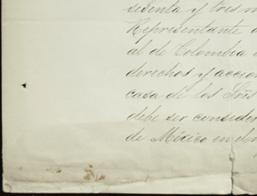 sesenta y tres m
Representante d
al de Colombia
derechos y accion
casa de los Sres
debe ser consider
de México en el